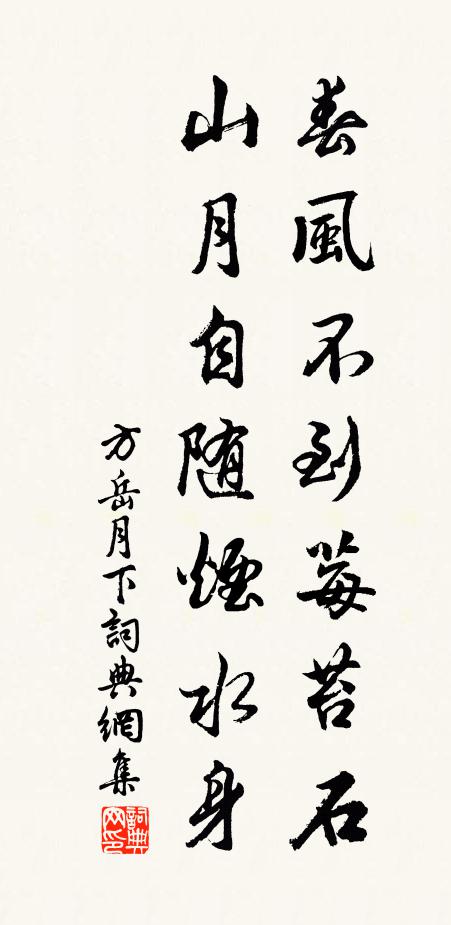 春風不到莓苔石
山月自随煙水身
方岳月下詞典網集
詞典網印